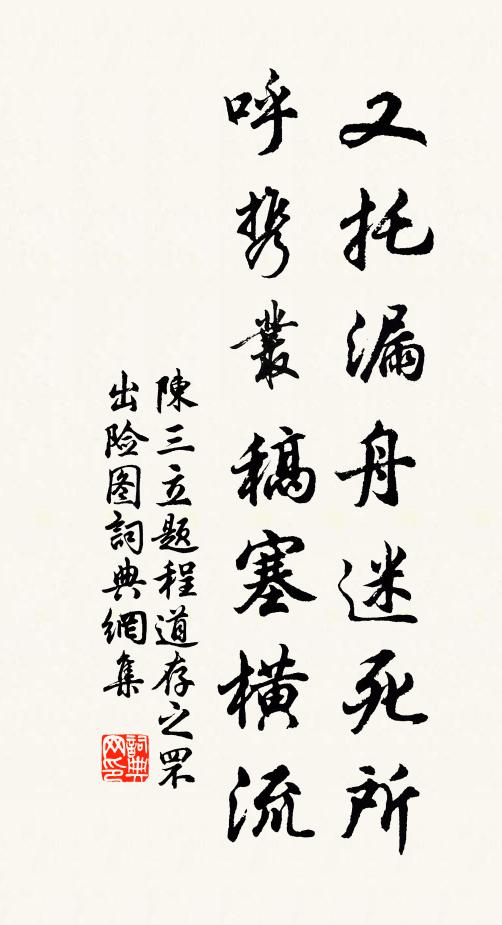 又托漏舟迷死所
呼携叢稿塞横流
陳三立题程道存之罘
出险图詞典網集
詞典网印